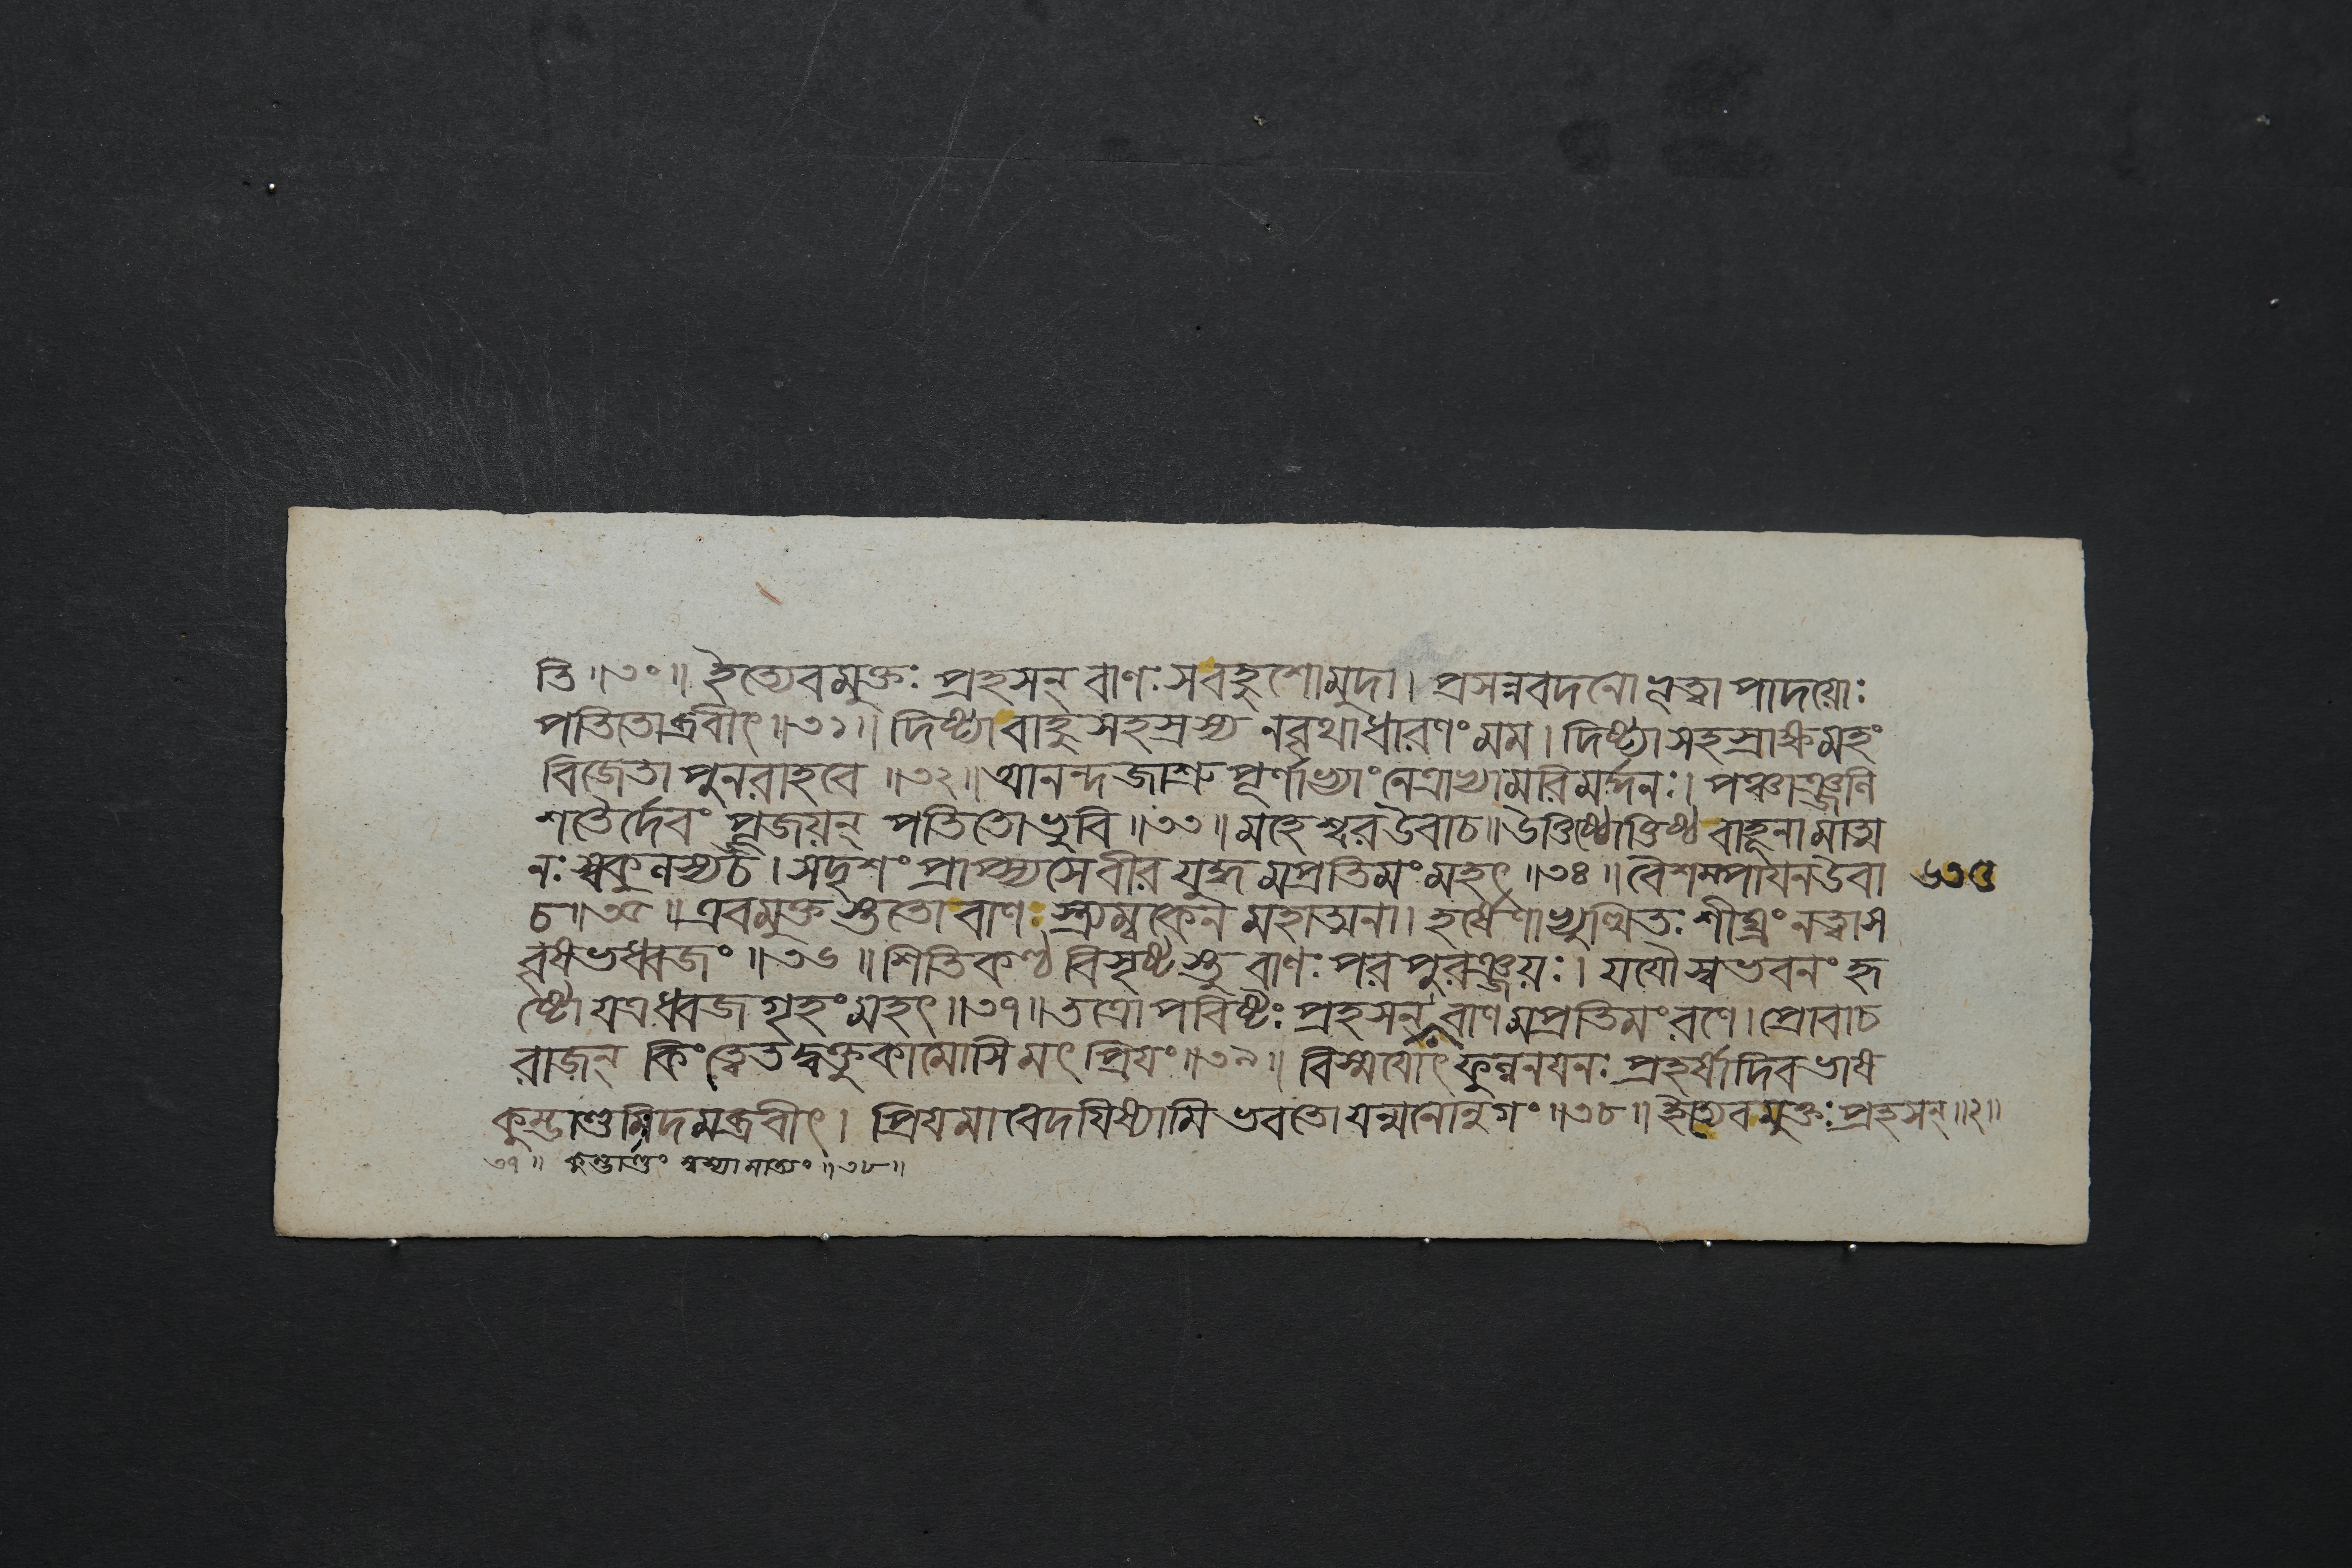 তি ॥৩০॥ ইত্যেবমুক্তঃ প্রহসন্ বাণঃ সবহুশোমুদা। প্রসন্নবদনো ভূত্বা পাদয়োঃ
পতিতোব্রবীৎ ॥৩১॥ দিষ্ট্যা বাহুসহস্রস্য নবৃথাধারণং মম। দিষ্ট্যা সহস্রাক্ষমহং
বিজেতা পুনরাহবে ॥৩২॥ আনন্দজাশ্রুপূর্ণাভ্যাং নেত্রাভ্যামরিমর্দ্দনঃ। পঞ্চাঞ্জলি
শতৈর্দেবং পূজয়ন্ পতিতোভুবি ॥৩৩॥ মহেশ্বরউবাচ॥ উত্তিষ্ঠোত্তিষ্ঠ বাহূনামাত্ম
নঃ স্বকুলস্যচ। সদৃশং প্রাপ্স্যসেবীর যুদ্ধমপ্রতিমংমহৎ ॥৩৪॥ বৈশম্পায়নউবা ৬৩৫
চ ॥৩৫॥ এবমুক্তস্ততো বাণঃ স্ত্র্যম্বকেন মহাত্মনা। হর্ষেণাভ্যুত্থিতঃ শীঘ্রং নত্বাস
বৃষভধ্বজং ॥৩৬॥ শিতিকণ্ঠ বিসৃষ্টস্তু বাণঃ পরপুরঞ্জয়ঃ। যযৌস্বভবনং হৃ
ষ্টো যত্রধ্বজগৃহংমহৎ ॥৩৭॥ তত্রোপবিষ্টঃ প্রহসন্ বাণমপ্রতিমংরণে। প্রোবাচ
রাজন্ কিংত্বেতদ্বক্তুকামোসি মৎপ্রিয়ং ॥৩৯॥ বিস্ময়োৎফুল্লনয়নঃ প্রহর্ষাদিবভাষ
কুম্ভাণ্ডমিদমব্রবীৎ। প্রিয়মাবেদয়িষ্যামি ভবতো যন্মনোনুগং ॥৩৮॥ ইত্যেবমুক্তঃ প্রহসন্ ॥২॥
৩৭॥ কুম্ভাণ্ডং স্বস্যামাত্যং ॥৩৮॥